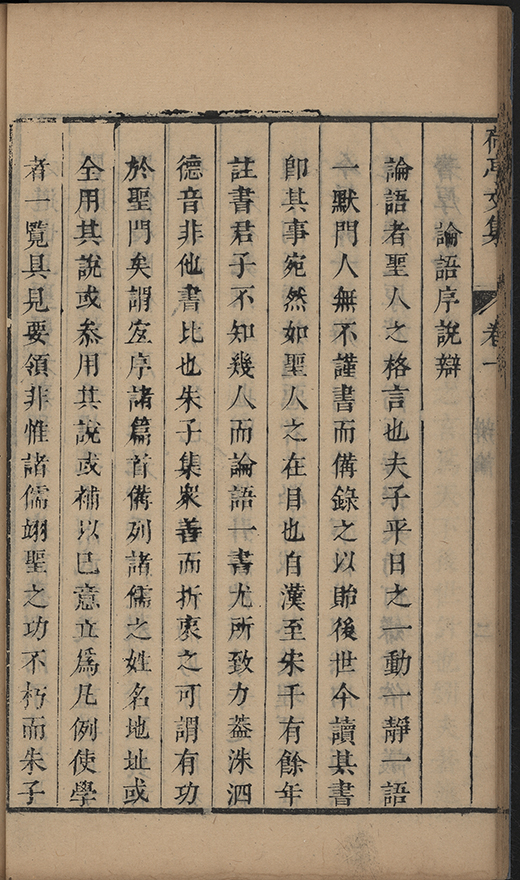 亭文集
卷一
論語序說辯
論語者聖人之格言也夫子平日之一動一靜一語
一默門人無不謹書而備錄之以貽後世今讀其書
卽其事宛然如聖人之在目也自漢至宋千有餘年
註書君子不知幾人而論語一書尤所致力葢洙泗
德音非他書比也朱子集衆善而折衷之可謂有功
於聖門矣謂宐序諸篇首備列諸儒之姓名地址或
全用其說或叅用其說或補以巳意立爲凡例使學
者一覽具見要領非惟諸儒翊聖之功不朽而朱子